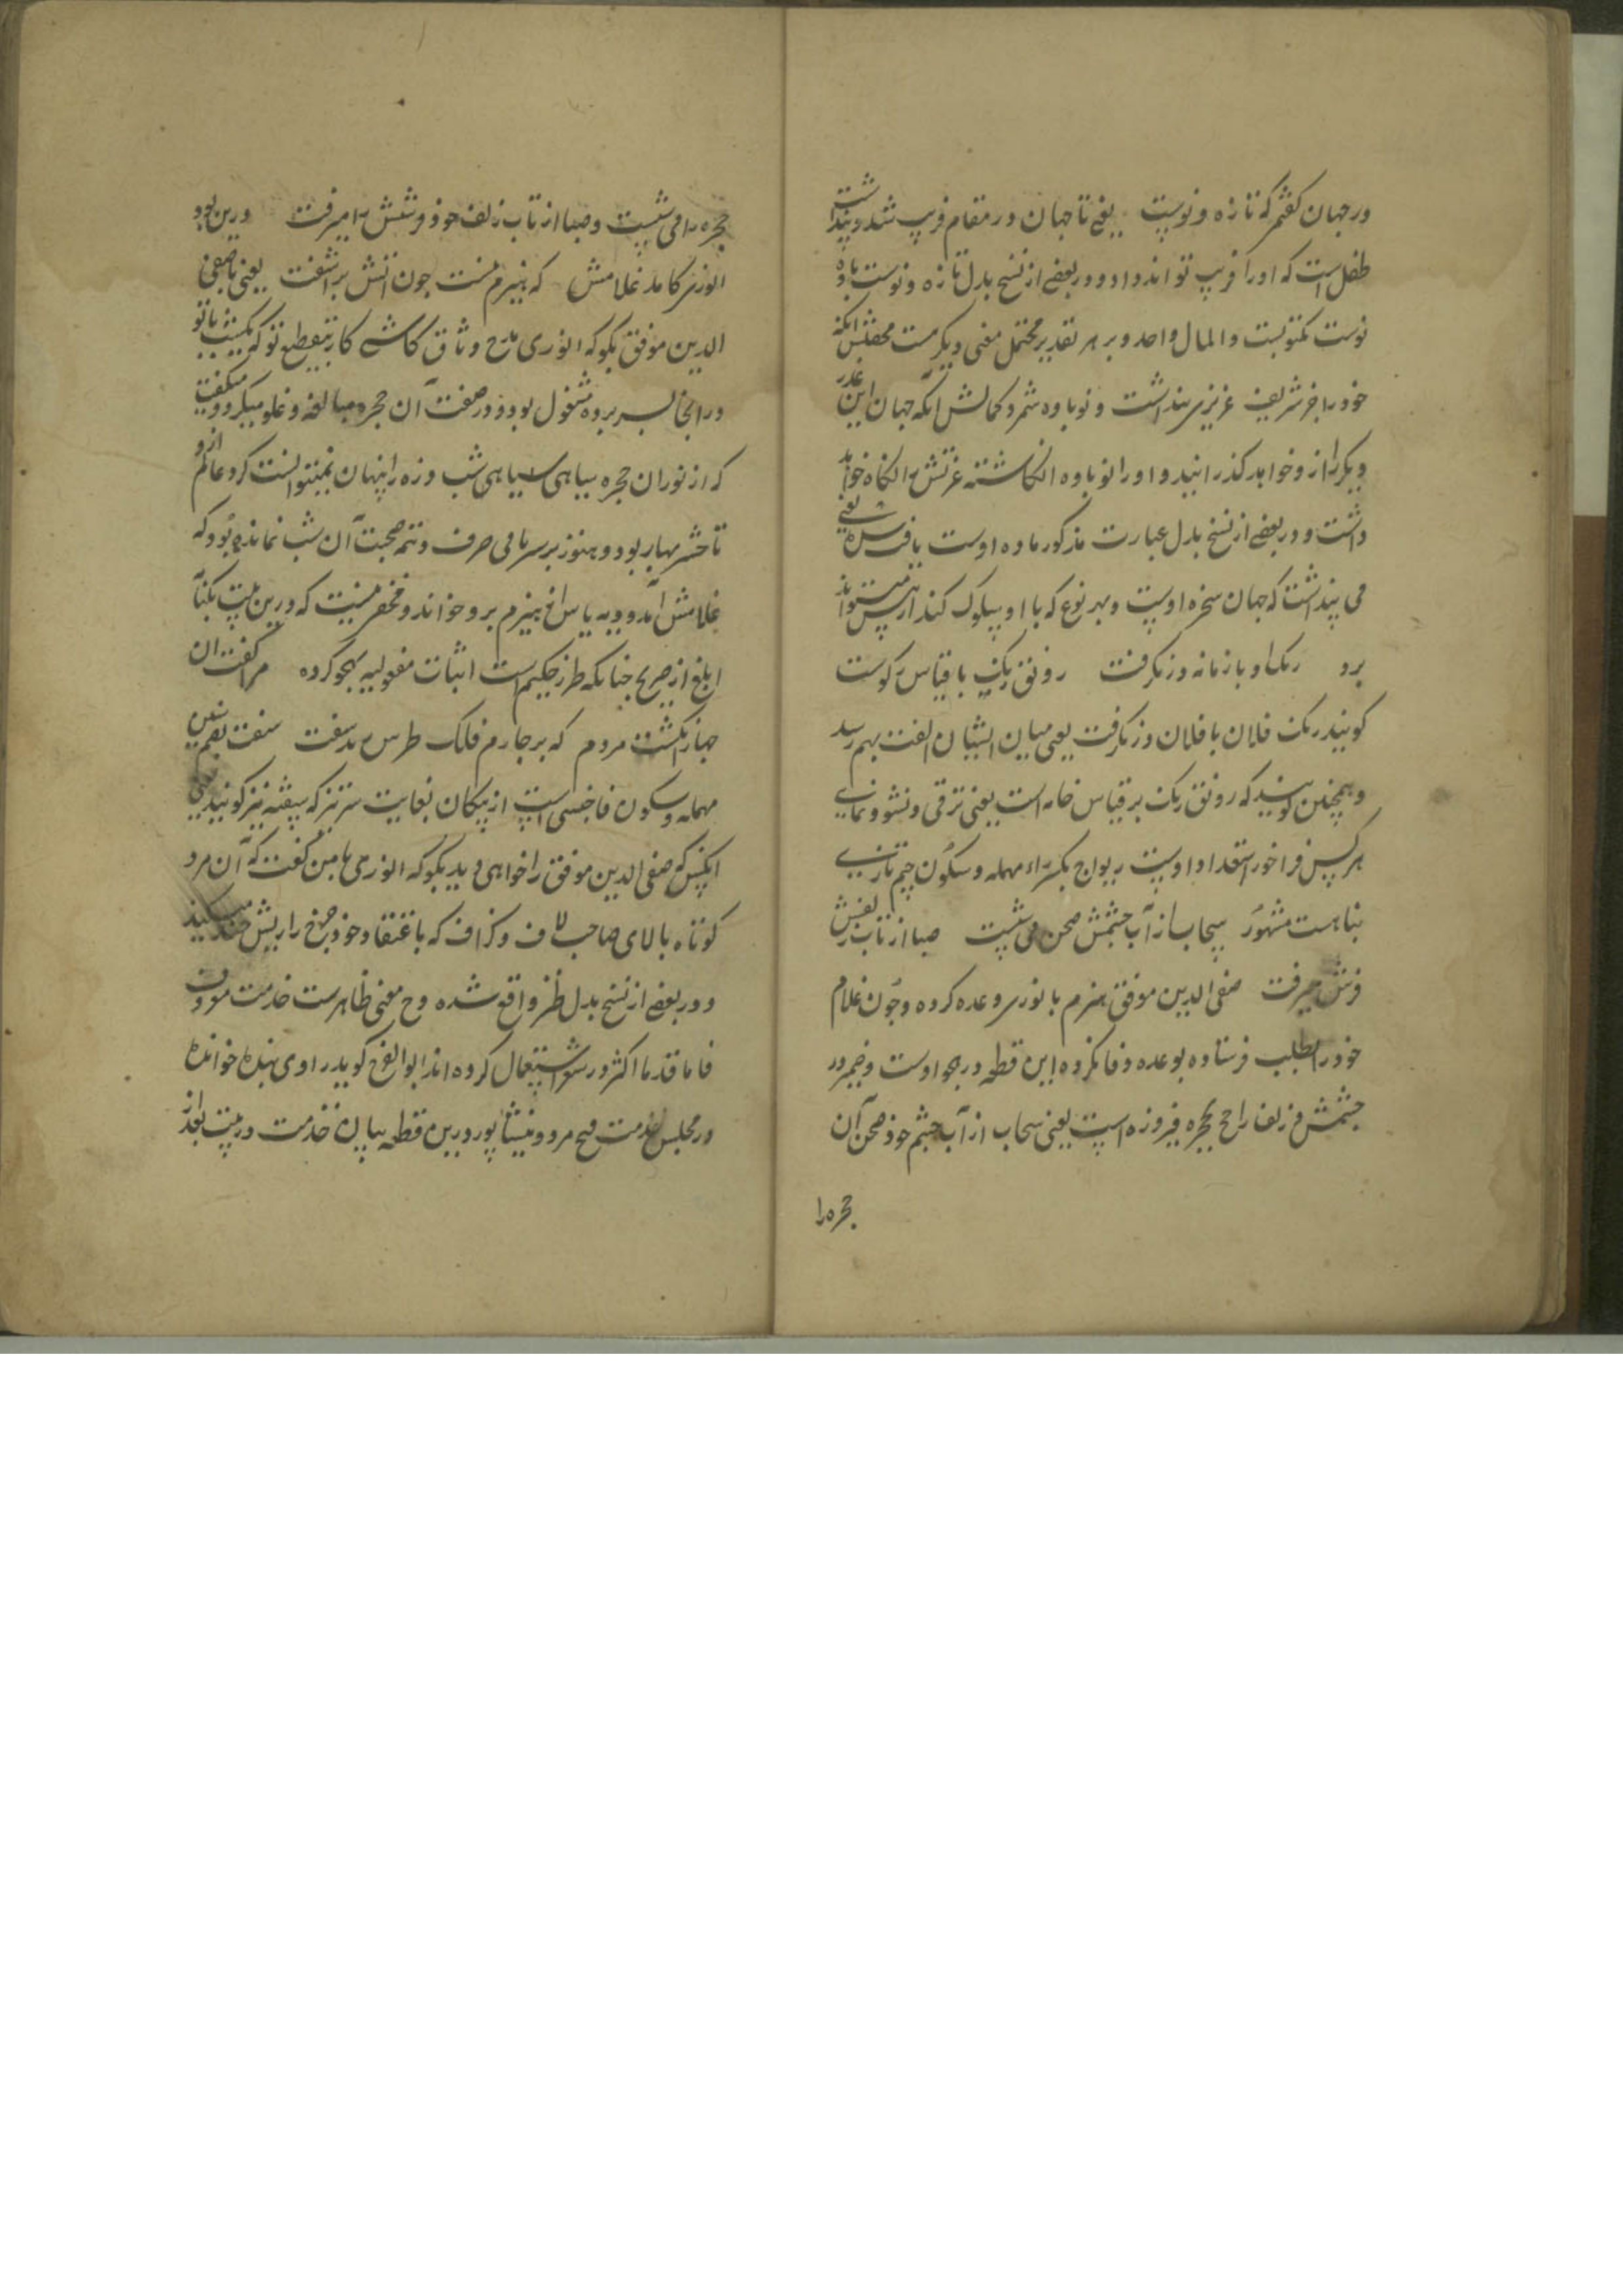 در جهان گفتم که تازه و نوست یعنی تا جهان در مقام فریب شد و پنداشت
طفل است که او را فریب تواند داد و در بعضی از نسخ بدل تازه و نوست باوه
نوست مکتوبست و المال واحد و بر هر تقدیر محتمل معنی دیگرست محقش آنکه
خود را جز شریف عزیزی پنداشت و نوباوه شمرد کمالش آنکه جهان این عذر
دیگر را ازو خواهد گذرانید و او را نوباوه انکاشته عزتش نگاه خواهد
داشت و در بعضی از نسخ بدل عبارت مذکور ماده اوست یافت شده یعنی
می پنداشت که جهان سخره اوست و بهر نوع که با او سلوک کند از پیش میتواند
برد رنک او با زمانه در نگرفت رونق رنگ با قیاس رکوست
گویند رنک فلان با فلان در نگرفت یعنی میان ایشان الفت بهم رسد
و همچنین گویند که رونق رنک بر قیاس خامه است یعنی ترقی و نشو و نمای
هر کس فراخور استعداد اوست ریواج بکسر راء مهمله و سکون جیم تازی
بناهست مشهور سحاب از آب چشمش صحن می شست صبا از تاب زلفش
فرش میرفت صفی الدین موفق هیزم بانوری وعده کرده و چون غلام
خود را بطلب فرستاده بوعده وفا نکرده این قطعه در هجو اوست و ضمیر در
چشمش و زلف راجع بحجره فیروزه است یعنی سحاب از آب چشم خود صحن آن
حجره را
حجره را می شست و صبا از تاب زلف خود فرشش را میرفت درین بود
انوری کامد غلامش که هیزم نیست چون آتش بر آشفت یعنی با صفی
الدین موفق بگو که انوری مدح وثاق کاشی کار بتقطیع تو که یکشب با تو
در انجا بسر برده مشغول بود و در صفت آن حجره مبالغه و غلو میکرد و میگفت
که از نور آن حجره سیاهی سیاهی شب ذره را پنهان نمیتوانست کرد و عالم ازو
تا حشر بهار بود و هنوز بر سر نامی حرف و تتمه صحبت آن شب نمانده بود که
غلامش آمد و دیه یاس از هیزم برو خواند و مخفی نیست که درین بیت بکنایه
ابلغ از صریح چنانکه طرز حکیم است اثبات مفعولیه بهجو کرده مر کفت ان
چهار انکشت مردم که بر چارم فلک طرس بدسفت سفت بضم سین
مهمله و سکون فا جنسی است از پیکان بغایت سرتیز که سفته نیز گویند یعنی
ایکس که صفی الدین موفق را خواهی دید بگو که انوری با من گفت که آن مرد
کوتاه بالای صاحب لاف و گزاف که باعتقاد خود چرخ را ریش خند میکند
و در بعضی از نسخ بدل طنز واقع شده و ح معنی ظاهرست خدمت مروت
فاما قدما اکثر در شعر استعمال کرده اند ابوالفرج گوید راوی بنده خوانده
در مجلس خدمت فتح مرو و نیشاپور درین قطعه بیان خدمت در بیت بعد از